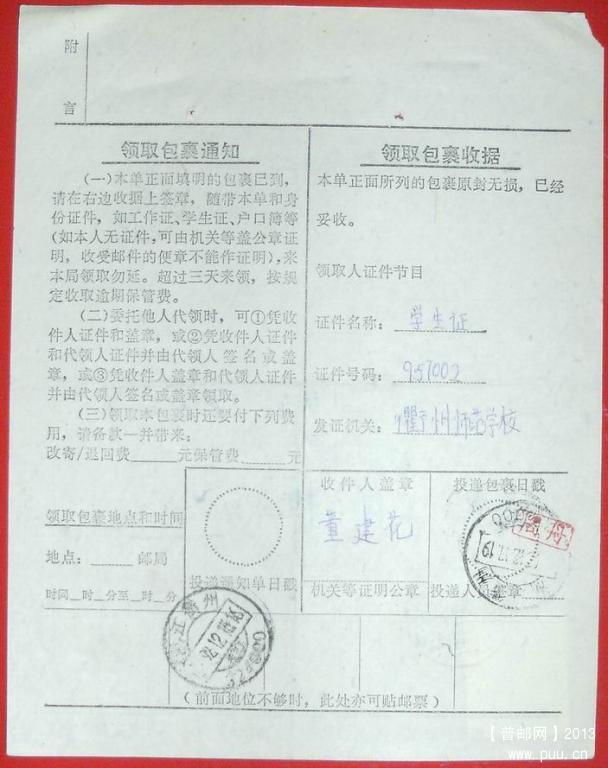 附
言
领取包裹通知
(一)本单正面填明的包裹已到,
请在右边收据上签章,随带本单和身
份证件,如工作证、学生证、户口簿等
(如本人无证件,可由机关等盖公章证
明,收受邮件的便章不能作证明),来
本局领取勿延。超过三天来领,按规
定收取逾期保管费。
(二)委托他人代领时,可①凭收
件人证件和盖章,或②凭收件人证件
和代领人证件并由代领人签名或盖
章,或③凭收件人盖章和代领人证件
并由代领人签名或盖章领取。
(三)领取本包裹时还要付下列费
用,请备款一并带来:
改寄/退回费____元保管费____元
领取包裹地点和时间
地点:____邮局
时间__时__分至__时__分
投递通知单日戳
领取包裹收据
本单正面所列的包裹原封无损,已经
妥收。
领取人证件节目
证件名称:学生证
证件号码:957002
发证机关:衢州师范学校
收件人盖章
董建花
投递包裹日戳
机关等证明公章
投递人员签章
浙江衢州
324000
(前面地位不够时,此处亦可贴邮票)
【普邮网】2013
www.puu.cn